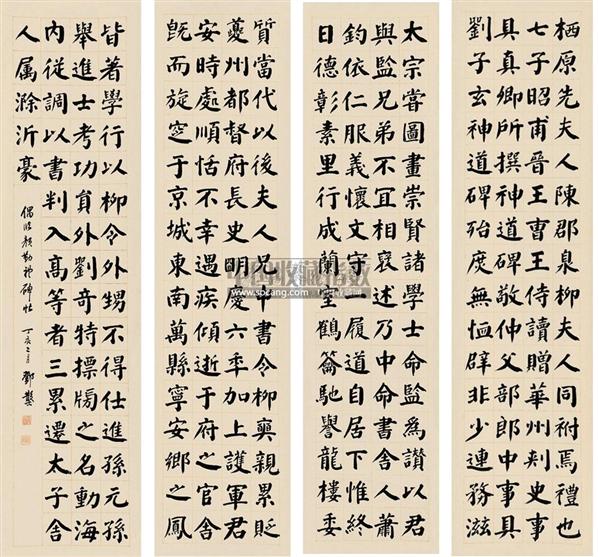 栖原先夫人陳郡泉柳夫人同祔焉禮也
七子昭甫晉王曹王侍讀贈華州刾史事
具真卿所撰神道碑敬仲父部郎中事具
劉子玄神道碑殆庶無恤辟非少連務滋
太宗嘗圖畫崇賢諸學士命監爲讃以君
與監兄弟不宜相襃述乃中命書舍人蕭
鈞依仁服義懷文守一履道自居下惟終
日德彰素里行成蘭室鶴籥馳譽龍樓委
質當代以後夫人兄中書令柳奭親累貶
夔州都督府長史明慶六秊加上護軍君
安時處順恬不幸遇疾傾逝于府之官舍
既而旋窆于京城東南萬縣寧安鄉之鳳
皆著學行以柳令外甥不得仕進孫元孫
舉進士考功員外劉竒特標牓之名動海
内従調以書判入高等者三累還太子舍
人属滁沂豪
偶臨顏勤禮碑帖 丁亥之月 鄧
中国收藏指数
www.spcang.com